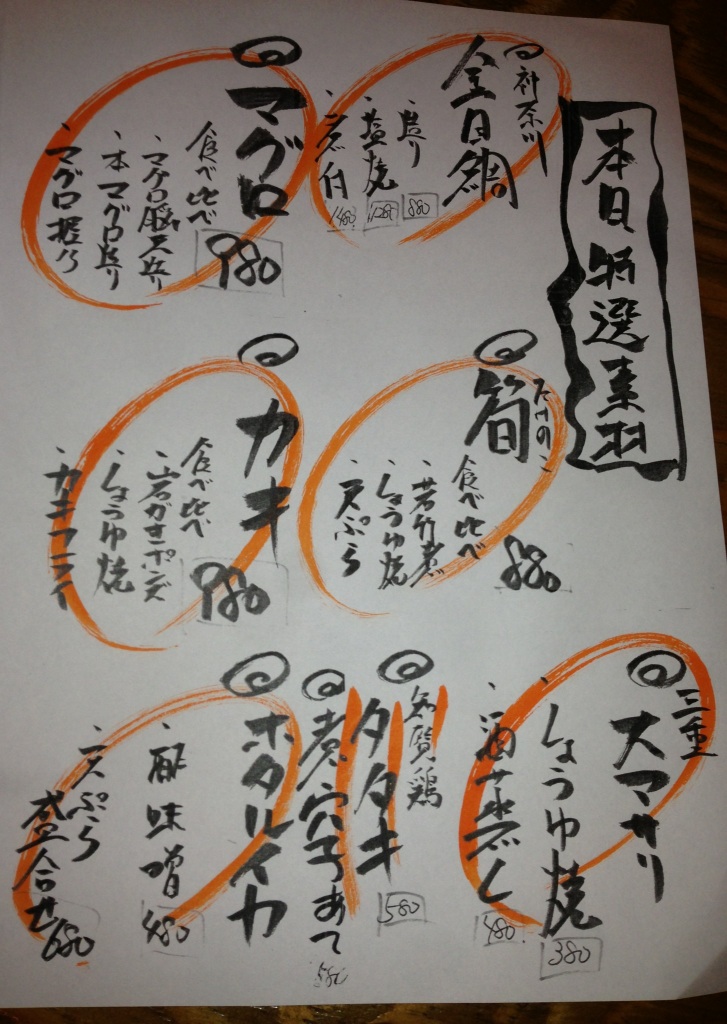 本日特選素材
神奈川
金目鯛
造り 880
塩焼 1280
煮付 1480
マグロ
食べ比べ
980
・マグロ脳天造り
・本マグロ造り
・マグロ握り
たけのこ
筍
食べ比べ
880
・若竹煮
・しょうゆ焼
・天ぷら
カキ
食べ比べ
980
・岩がきポンズ
・しょうゆ焼
・カキフライ
三重
大アサリ
・しょうゆ焼 380
・酒蒸し 480
知覧鶏
タタキ 580
煮穴子あて 580
ホタルイカ
・酢味噌 480
・天ぷら
盛合せ 680